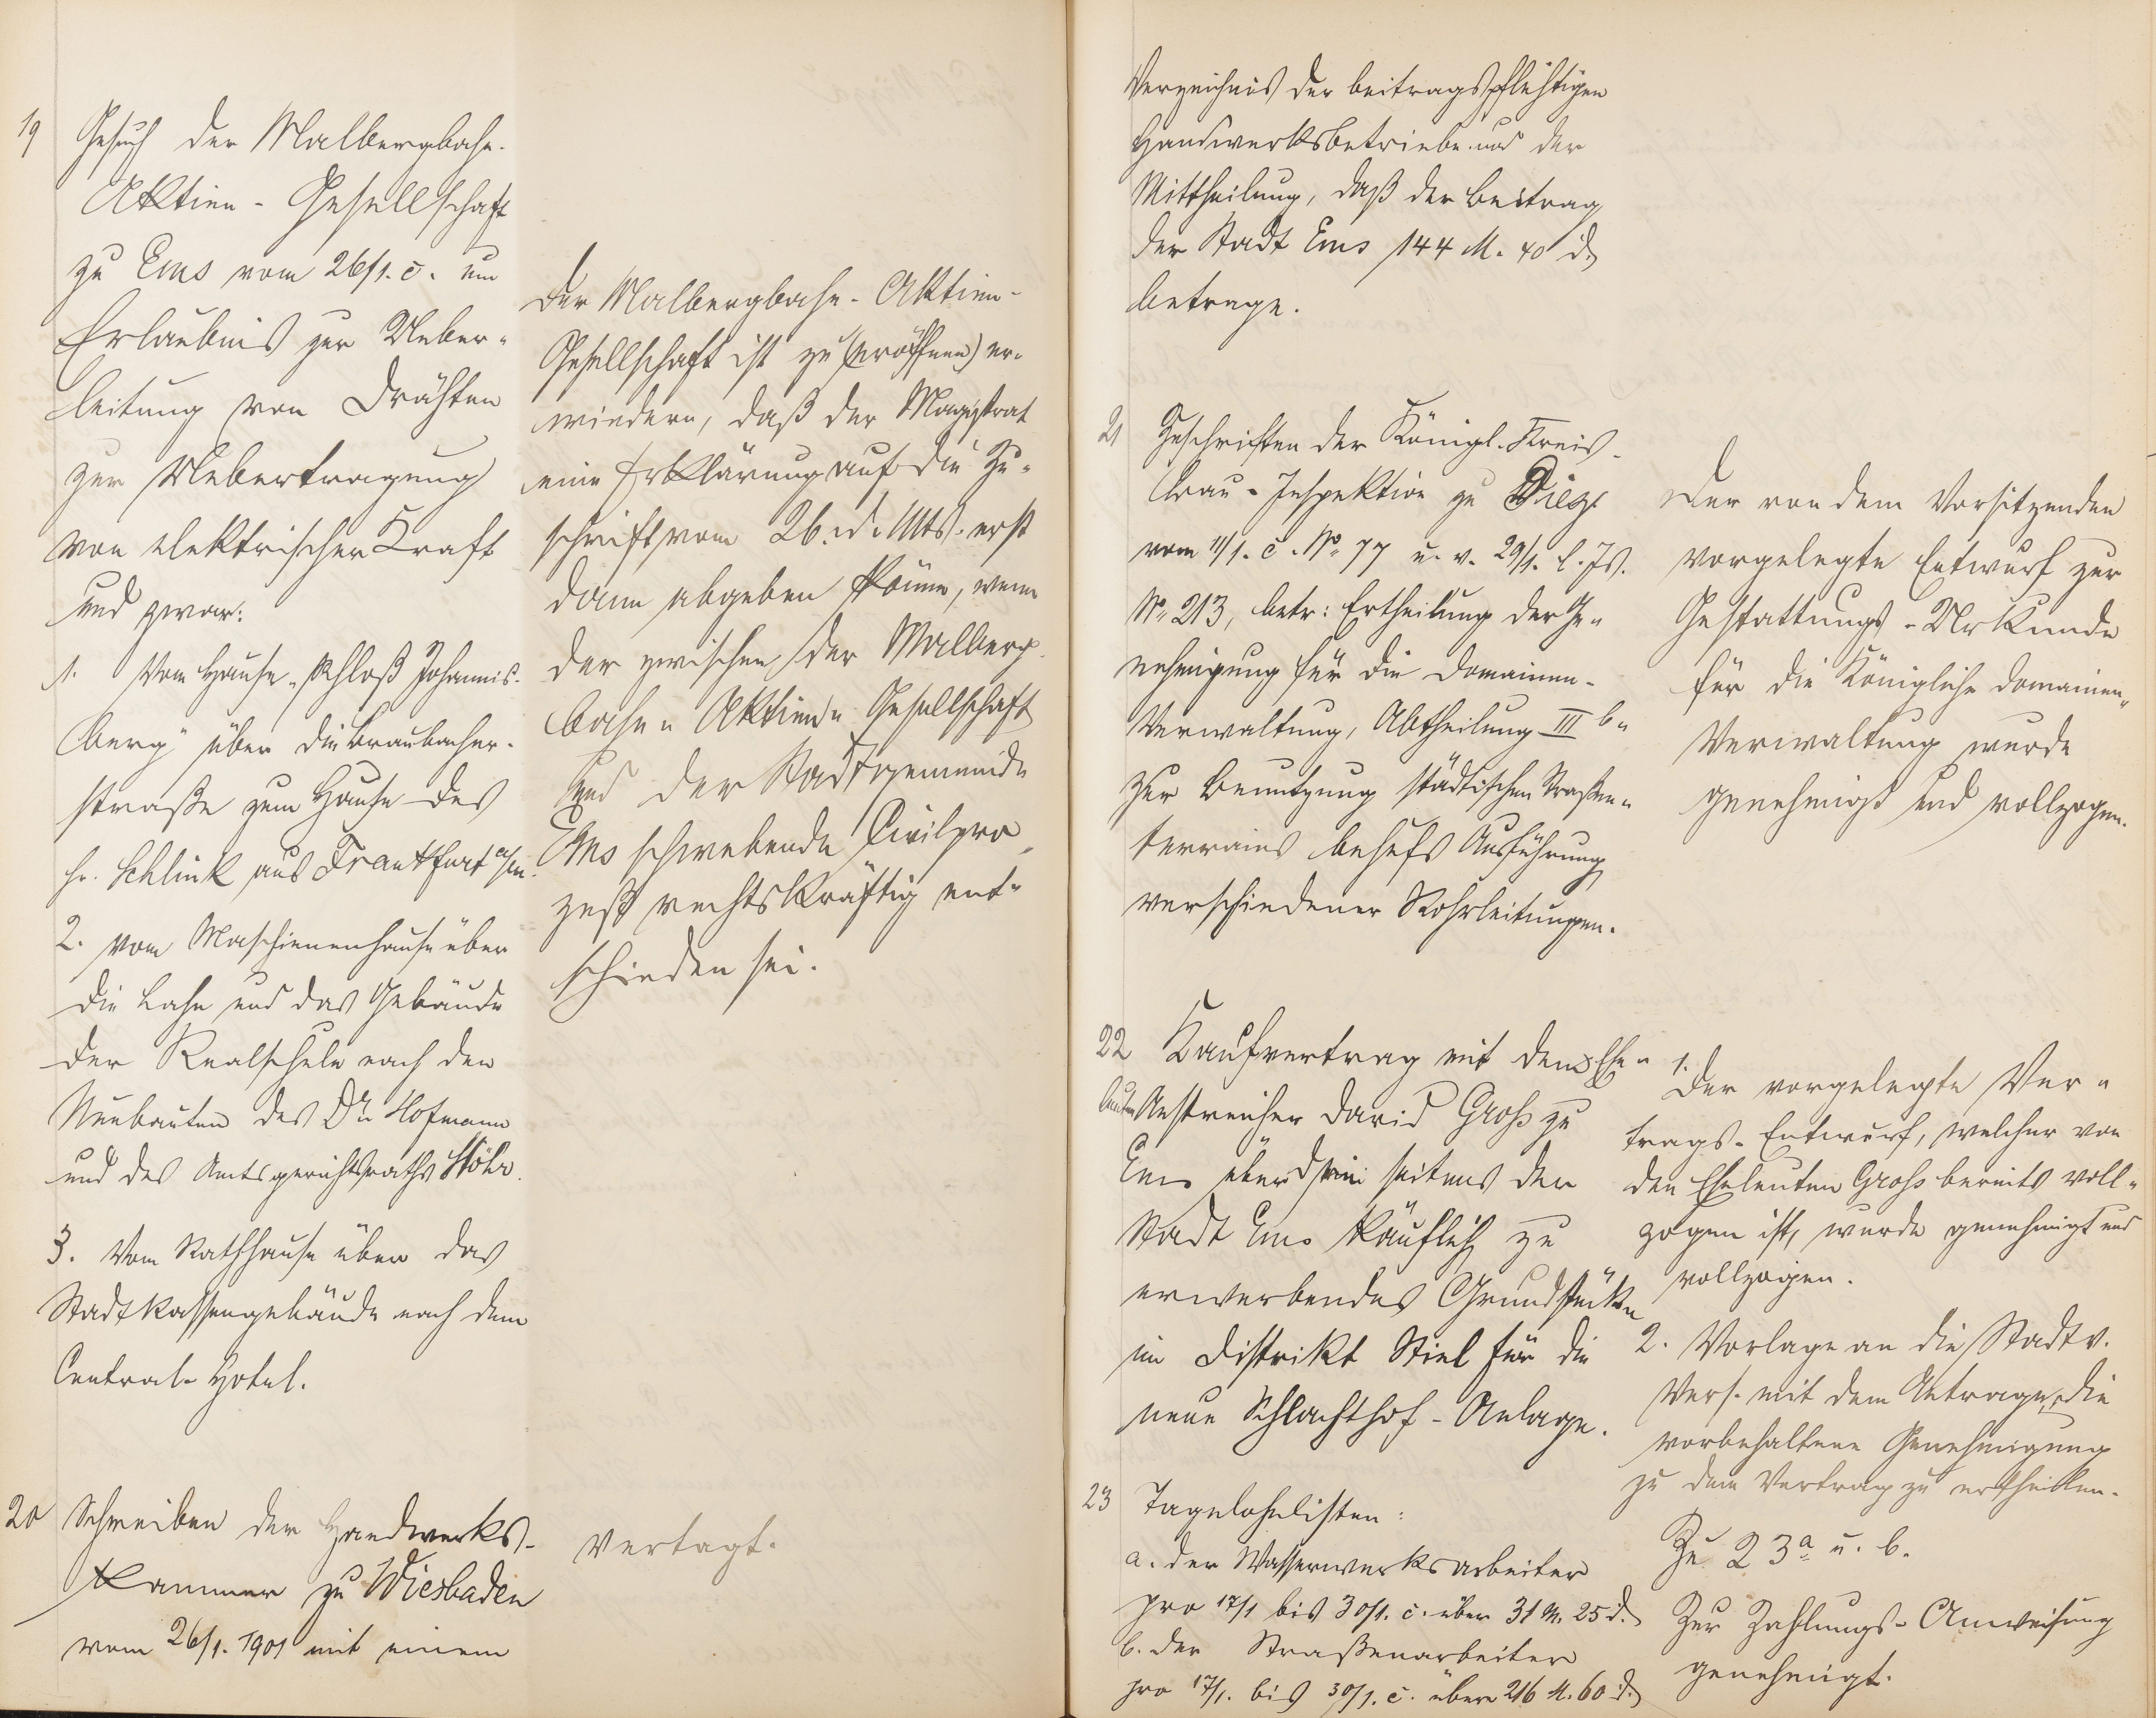 19
Gesuch der Malbergbahn-
Aktien-Gesellschaft
zu Ems vom 26/1. c. um
Erlaubniß zur Ueber-
leitung von Drähten
zur Uebertragung
von elektrischer Kraft
und zwar:
1. Vom Hause „Schloß Johannis-
berg" über die Braubacher-
straße zum Hause des
Hr. Schlink aus Frankfurt a/m.
2. vom Maschienenhause über
die Lahn und das Gebäude
der Realschule nach den
Neubauten des Dr. Hofmann
und des Amtsgerichtsraths Stöhr.
3. Vom Rathhause über das
Stadtkassengebäude nach dem
Central-Hotel.
Der Malbergbahn-Aktien-
Gesellschaft ist zu (eröffnen) er-
wiedern, daß der Magistrat
eine Erklärung auf die Zu-
schrift vom 26. d. Mts. erst
dann abgeben könne, wenn
der zwischen der Malberg-
bahn-Aktien-Gesellschaft
und der Stadtgemeinde
Ems schwebende Civilpro-
zeß rechtskräftig ent-
schieden sei.
20
Schreiben der Handwerks-
kammer zu Wiesbaden
vom 26/1. 1901 mit einem
Vertagt.
Verzeichniß der beitragspflichtigen
Handwerksbetriebe und der
Mittheilung, daß der Beitrag
der Stadt Ems 144 M. 40 d.
betrage.
21
Zuschriften der Königl. Kreis-
bau-Inspektion zu Diez
vom 11/1. c. No 77 u. v. 29/1. l. Js.
No 213, betr: Ertheilung der Ge-
nehmigung für die Domainen-
Verwaltung, Abtheilung III b-
zur Benutzung städtischen Straßen-
terrains behufs Ausführung
verschiedener Rohrleitungen.
Der von dem Vorsitzenden
vorgelegte Entwurf zur
Gestattungs-Urkunde
für die Königliche Domainen-
Verwaltung wurde
genehmigt und vollzogen.
22
Kaufvertrag mit den Ehe-
leuten Anstreicher David Groß zu
Ems über seitens der
Stadt Ems käuflich zu
erwerbendes Grundstücke
im Distrikt Stiel für die
neue Schlachthof-Anlage.
1.
Der vorgelegte Ver-
trags-Entwurf, welcher von
den Eheleuten Groß bereits voll-
zogen ist, wurde genehmigt und
vollzogen.
2. Vorlage an die Stadtv.
Vers. mit dem Antrage, die
vorbehaltene Genehmigung
zu dem Vertrag zu ertheilen.
23
Tagelohnlisten:
a. der Wasserwerksarbeiter
pro 17/1 bis 30/1. c. über 31 M. 25 d.
b. der Straßenarbeiter
pro 17/1. bis 30/1. c. über 216 M. 60 d.
Zu 23 a u. b.
Zur Zahlungs-Anweisung
genehmigt.